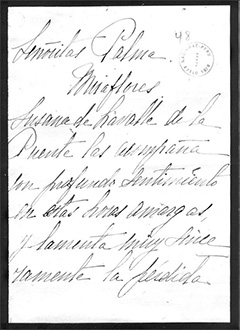 48
Señoritas Palma.
Miraflores
Susana de Lavalle de la
Puente las acompaña
con profundo sentimiento
en estas horas amargas,
y lamenta muy since
ramente la pérdida